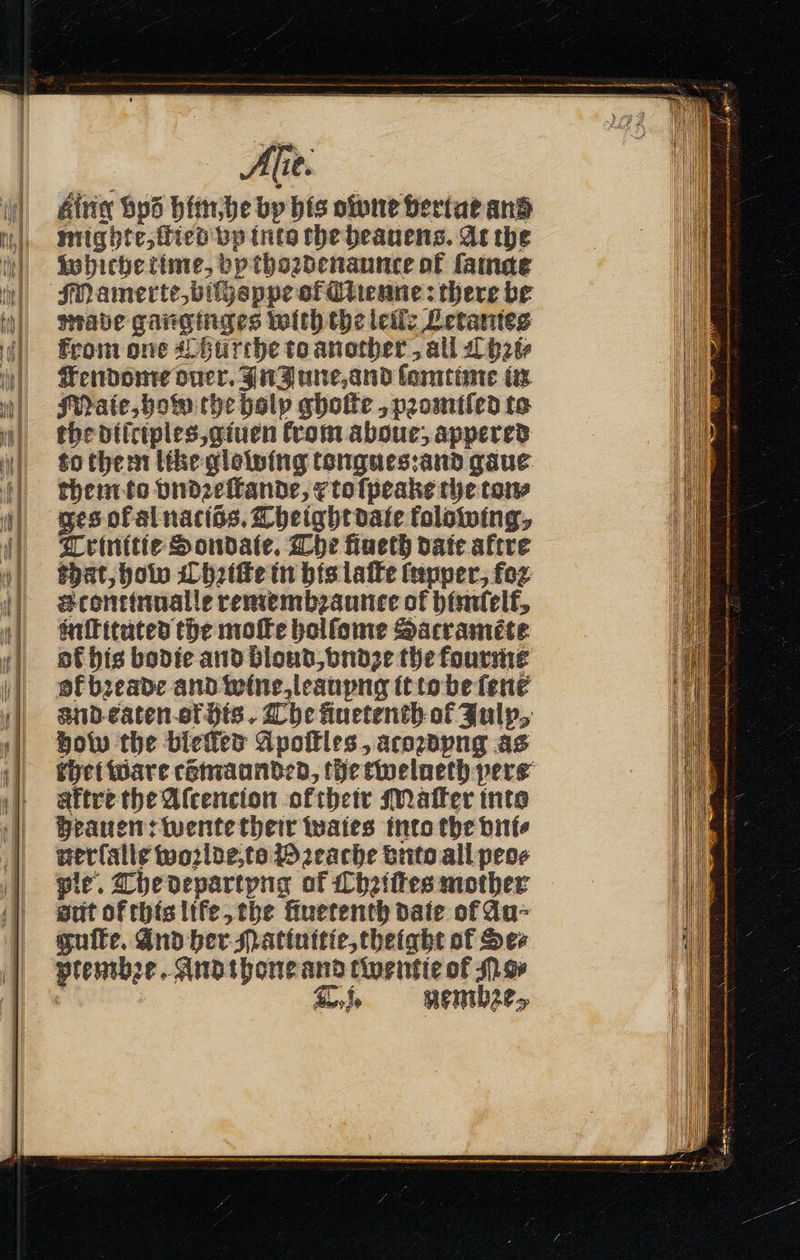 Asie.
king vpō him, he by his owne vertue and
mighte, stied vp into the heauens. At the
whiche time, by thordenaunce of sainᵭe
Mamerte, bisshoppe of Vienne: there be
made ganginges with the lesse Letanies
from one Churche to another, all Chri-
stendome ouer. In June, and somtime in
Maie, how the holy ghoste, promised to
the disciples, giuen from aboue, appered
to them like glowing tongues: and gaue
them to vndrestande, & to speake the ton-
ges of al naciōs. Theight daie folowing,
Trinitie Sondaie. The fiueth daie aftre
that, how Christe in his laste supper, for
a continualle remembraunce of himself,
instituted the moste holsome Sacramēte
of his bodie and bloud, vndre the fourme
of breade and wine, leauyng it to be sene
and eaten of his. The fiuetenth of July,
how the blessed Apostles, acordyng as
thei ware cōmaunded, the twelueth yere
aftre the Ascencion of their Master into
Heauen: wente their waies into the vni-
uersalle worlde, to Preache vnto all peo-
ple. The departyng of Christes mother
out of this life, the fiuetenth daie of Au-
guste. And her Natiuitie, theight of Se-
ptembre. And thone and twentie of No-
T.j. uembre,